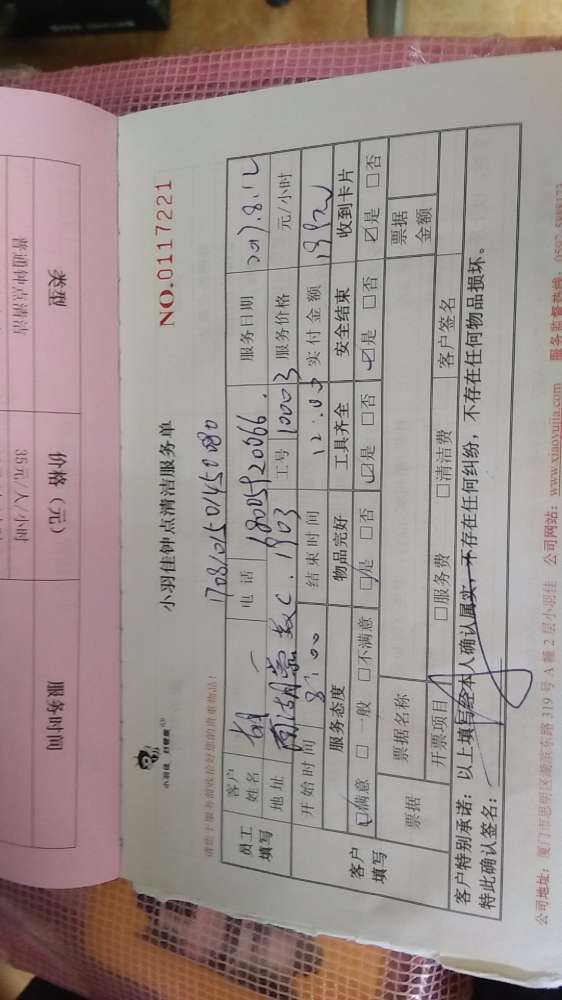 小羽佳 好管家
小羽佳钟点清洁服务单
NO.0117221
1708101501450080
请您于服务前收拾好您的贵重物品！
员工填写
客户姓名 胡一 电话 18059220066 服务日期 2017.8.12
地址 C.1903 工号 10003 服务价格 元/小时
开始时间 8:00 结束时间 12:00 实付金额
客户填写
服务态度 物品完好 工具齐全 安全结束 收到卡片
☑满意 □一般 □不满意 ☑是 □否 ☑是 □否 ☑是 □否 ☑是 □否
票据 票据名称 票据金额
开票项目 □服务费 □清洁费 客户签名
客户特别承诺：以上填写经本人确认属实，不存在任何纠纷，不存在任何物品损坏。
特此确认签名：
公司地址：厦门市思明区湖滨东路 319 号 A 幢 2 层小羽佳 公司网站：www.xiaoyujia.com 服务监督热线：
类型 价格（元） 服务时间
普通钟点清洁 35元/人/小时